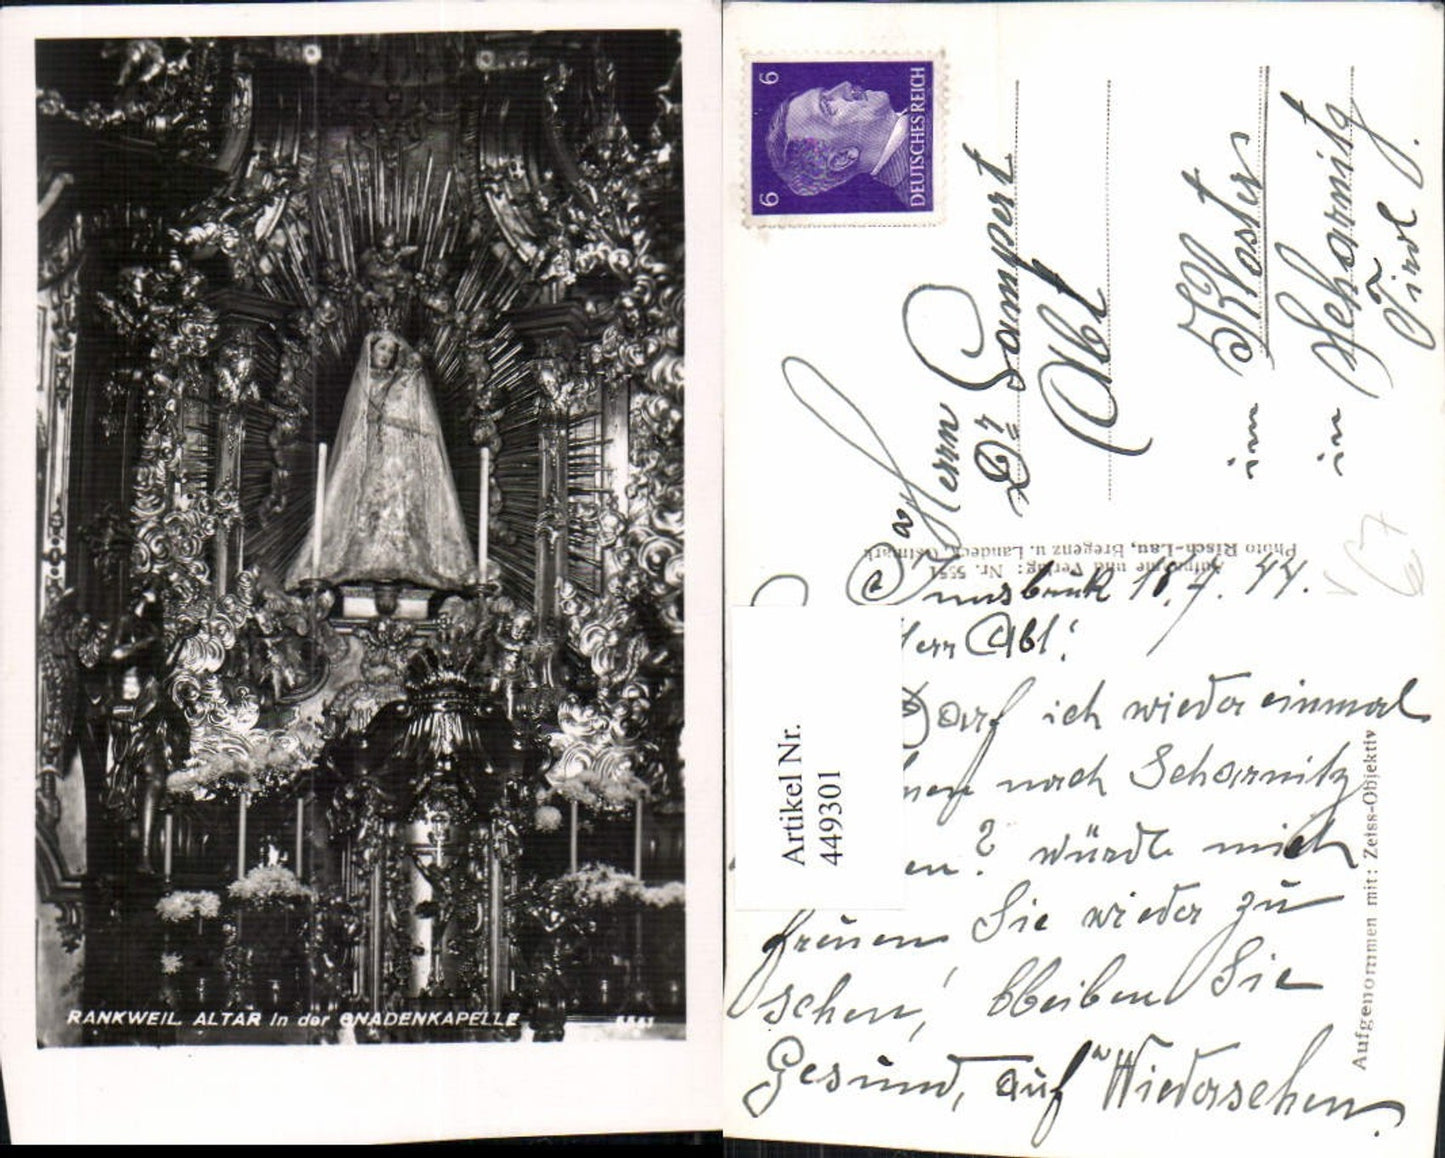 RANKWEIL. ALTAR in der GNADENKAPELLE
5551
6 6
DEUTSCHES REICH
Herrn
Dr. Lampert
Abt
im Kloster
in Scharnitz
Tirol.
Aufnahme und Verlag: Nr. 5551
Photo Risch-Lau, Bregenz u. Landeck, Ostmark
67
Artikel Nr.
449301
Innsbruk 10.7.44.
Herr Abt!
Darf ich wieder einmal
nach Scharnitz
en? würde mich
freuen Sie wieder zu
sehen, bleiben Sie
Gesund, auf Wiedersehen.
Aufgenommen mit: Zeiss-Objektiv